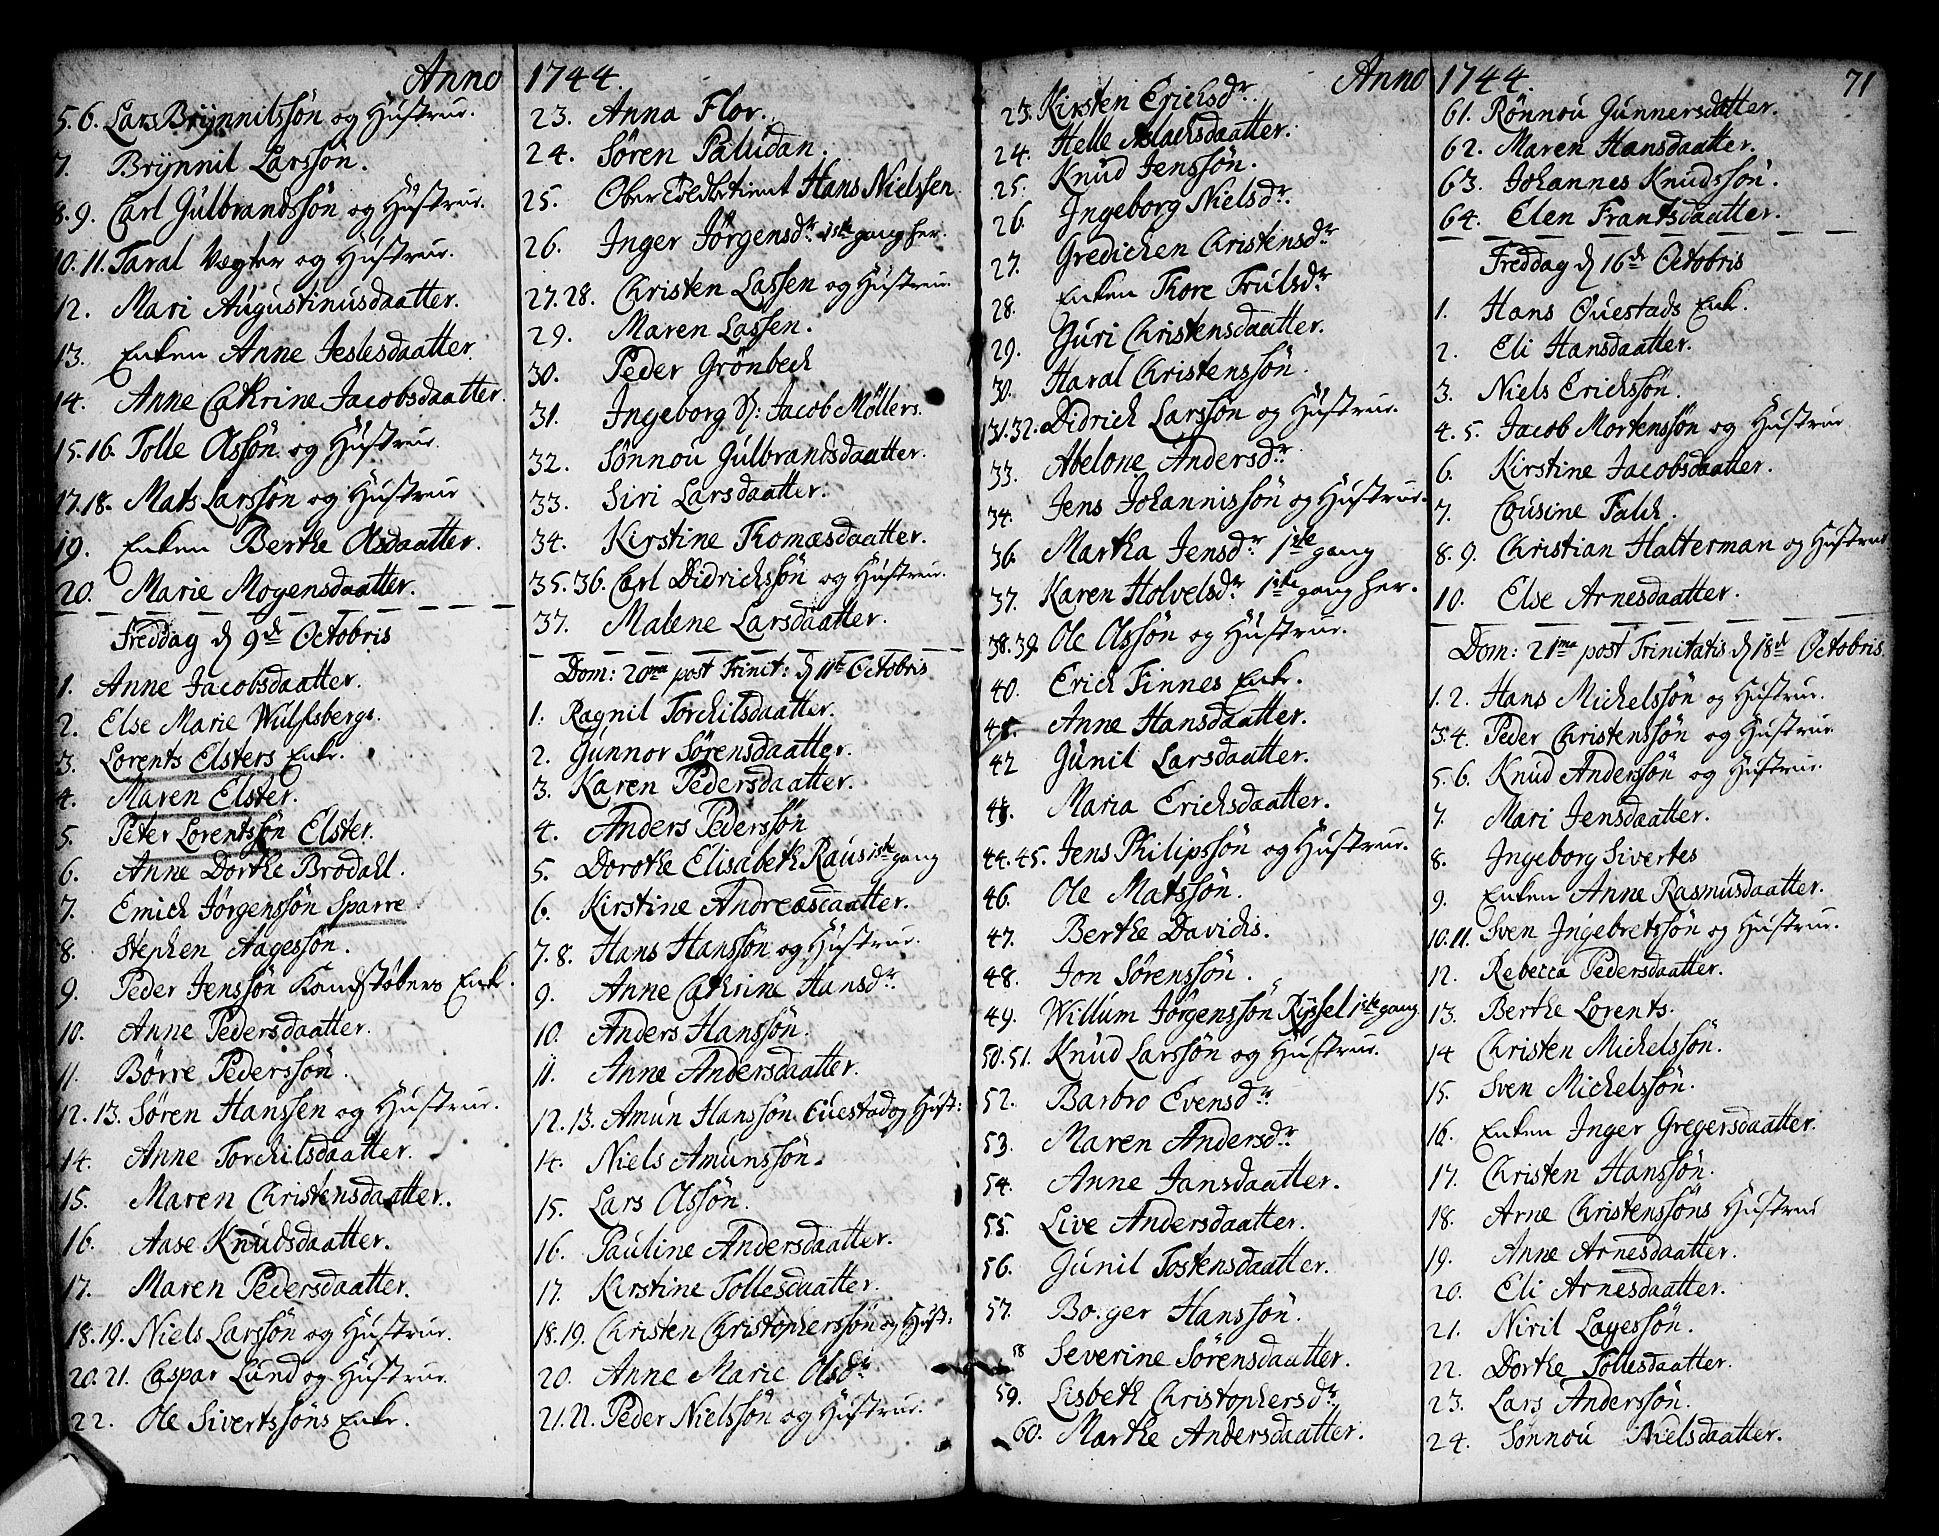 Anno 1744.
5.6. Lars Brÿnnilssøn og Hustrue.
7. Brÿnnil Larssøn.
8.9. Carl Gulbrandssøn og Hustrue.
10.11. Taral Vægter og Hustrue.
12. Mari Augustinusdaatter.
13. Enken Anne Jeslesdaatter.
14. Anne Cathrine Jacobsdaatter.
15.16. Tolle Olssøn og Hustrue.
17.18. Mats Larssøn og Hustrue
19. Enken Berthe Olsdaatter.
20. Marie Mogensdaatter.
Freddag d 9de Octobris
1. Anne Jacobsdaatter.
2. Else Marie Wulfsbergs.
3. Lorents Elsters Enke.
4. Maren Elster.
5. Peter Lorentssøn Elster.
6. Anne Dorthe Brodall.
7. Emich Jørgenssøn Sparre
8. Stephen Aagessøn.
9. Peder Jenssøn Kandstøbers Enk.
10. Anne Pedersdaatter.
11. Børre Pederssøn.
12.13. Søren Hanssen og Hustrue.
14. Anne Torchilsdaatter.
15. Maren Christensdaatter.
16. Aase Knudsdaatter.
17. Maren Pedersdaatter.
18.19. Niels Larssøn og Hustrue.
20.21. Caspar Lund og Hustrue.
22. Ole Sivertssøns Enke.
23. Anna Flor.
24. Søren Paludan.
25. Ober Toldbetient Hans Nielssen.
26. Inger Jørgensdr. 1ste gang her.
27.28. Christen Lassen og Hustrue.
29. Maren Lassen.
30. Peder Grønbech
31. Ingeborg Jacob Møllers.
32. Sønnou Gulbrandsdaatter.
33. Siri Larsdaatter.
34. Kirstine Thomæsdaatter.
35.36. Carl Didrichssøn og Hustrue.
37. Malene Larsdaatter.
Dom: 20ma post Trinit: d 11te Octobris
1. Ragnil Torchilsdaatter.
2. Gunnor Sørensdaatter.
3. Karen Pedersdaatter.
4. Anders Pederssøn
5. Dorothe Elisabeth Raus 1ste gang
6. Kirstine Andreæsdaatter.
7.8. Hans Hanssøn og Hustrue.
9. Anne Cathrine Hansdr.
10. Anders Hanssøn.
11. Anne Andersdaatter.
12.13. Amun Hanssøn Questad og Hust:
14. Niels Amunssøn.
15. Lars Olssøn.
16. Pauline Andersdaatter.
17. Kirstine Tollesdaatter.
18.19. Christen Christopherssøn og Hust:
20. Anne Marie Olsdr
21.22. Peder Nielssøn og Hustrue.
Anno 1744. 71
23. Kirsten Erichsdr.
24. Helle Aslachsdaatter.
25. Knud Jenssøn.
26. Ingeborg Nielsdr.
27. Gredichen Christensdr
28. Enken Thore Trulsdr
29. Guri Christensdaatter.
30. Haral Christenssøn.
31.32. Didrich Larssøn og Hustrue.
33. Abelone Andersdr
34. Jens Johannissøn og Hustrue.
36. Martha Jensdr 1ste gang
37. Karen Holvelsdr 1ste gang her.
38.39. Ole Olssøn og Hustrue.
40. Erich Finnes Enke.
41. Anne Hansdaatter.
42 Gunil Larsdaatter.
43. Maria Erichsdaatter.
44.45. Jens Philipssøn og Hustrue.
46. Ole Matssøn.
47. Berthe Davidis.
48. Jon Sørenssøn.
49. Willum Jørgenssøn Ryssel 1ste gang
50.51. Knud Larssøn og Hustrue.
52. Barbro Evensdr
53. Maren Andersdr
54. Anne Jansdaatter.
55. Live Andersdaatter.
56. Gunil Tostensdaatter.
57. Borger Hanssøn.
58 Severine Sørensdaatter.
59. Lisbeth Christophersdr
60. Marthe Andersdaatter.
61. Rønnou Gunnersdatter.
62. Maren Hansdaatter.
63. Johannes Knudssøn.
64. Elen Frantsdaatter.
Freddag d 16de Octobris
1. Hans Questads Enk.
2. Eli Hansdaatter.
3. Niels Erichssøn.
4.5. Jacob Mortenssøn og Hustrue
6. Kirstine Jacobsdaatter.
7. Cousine Falch.
8.9. Christian Halterman og Hustrue
10. Else Arnesdaatter.
Dom: 21ma post Trinitatis d 18de Octobris.
1.2. Hans Michelssøn og Hustrue.
3.4. Peder Christenssøn og Hustrue.
5.6. Knud Anderssøn og Hustrue.
7. Mari Jensdaatter.
8. Ingeborg Sivertes
9. Enken Anne Rasmusdaatter.
10.11. Sven Ingebretssøn og Hustrue.
12. Rebecca Pedersdaatter.
13. Berthe Lorents.
14 Christen Michelssøn.
15. Sven Michelssøn.
16. Enken Inger Gregersdaatter.
17. Christen Hanssøn.
18. Arne Christenssøns Hustrue
19. Anne Arnesdaatter.
20. Eli Arnesdaatter.
21. Niril Lagessøn.
22. Dorthe Tollesdaatter.
23. Lars Anderssøn.
24. Sønnou Nielsdaatter.